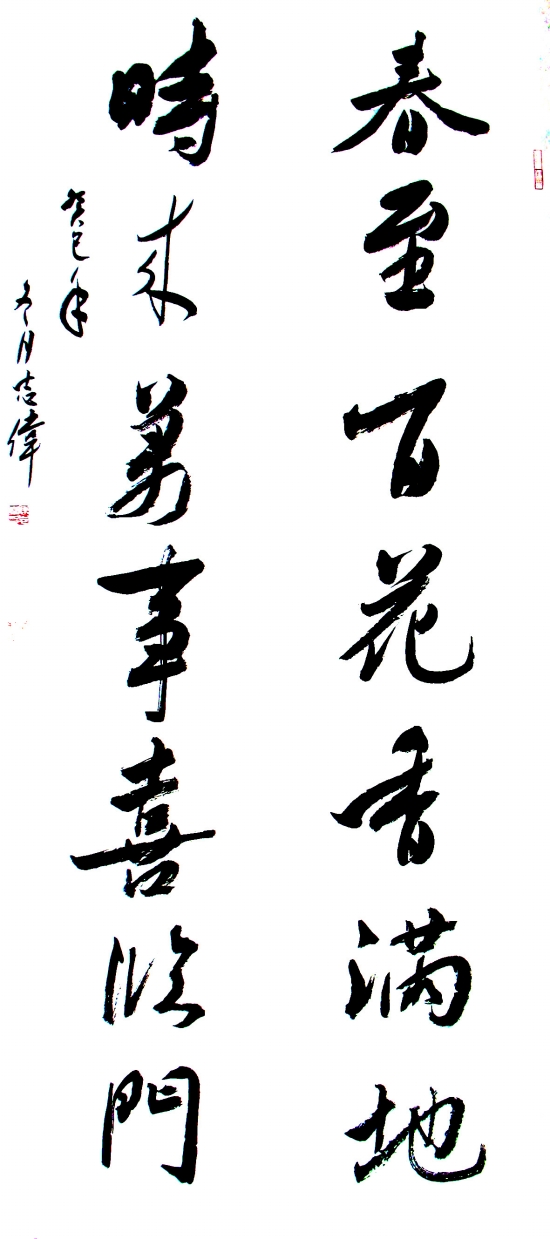 春至百花香滿地
時來萬事喜臨門
癸巳年
冬月志偉